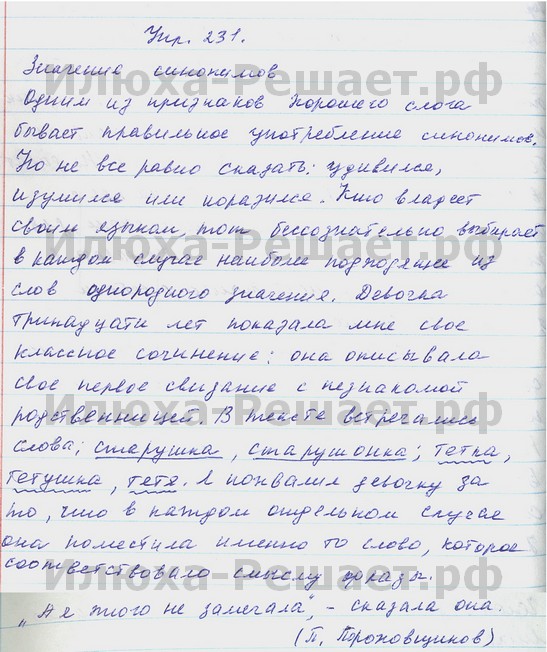 Упр. 231.
Значение синонимов
Одним из признаков хорошего слога
бывает правильное употребление синонимов.
Но не все равно сказать: удивился,
изумился или поразился. Кто владеет
своим языком, тот бессознательно выбирает
в каждом случае наиболее подходящее из
слов однородного значения. Девочка
тринадцати лет показала мне свое
классное сочинение: она описывала
свое первое свидание с незнакомой
родственницей. В тексте встречались
слова: старушка, старушонка; тетка,
тетушка, тетя. Я похвалил девочку за
то, что в каждом отдельном случае
она поместила именно то слово, которое
соответствовало смыслу фразы.
„А я этого не замечала", - сказала она.
(П. Пороховщиков)
Илюха-Решает.рф
Илюха-Решает.рф
Илюха-Решает.рф
Илюха-Решает.рф